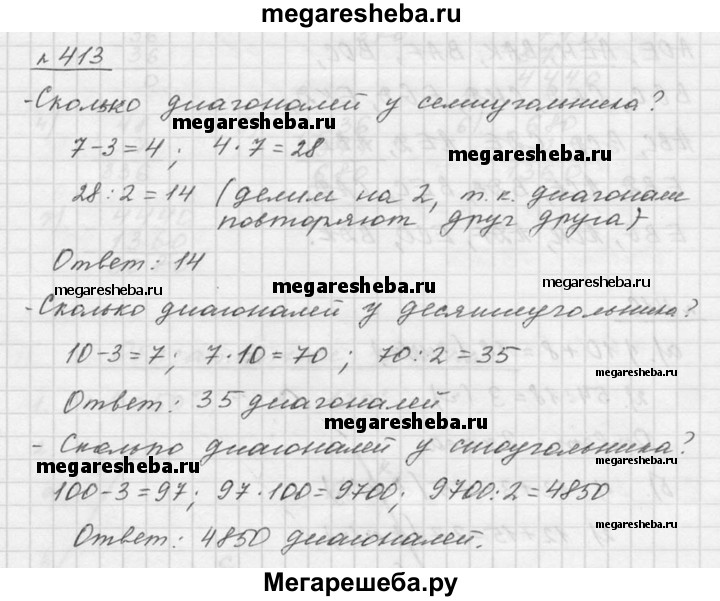 megaresheba.ru
№ 413
-Сколько диагоналей у семиугольника?
megaresheba.ru
7-3=4; 4·7=28
megaresheba.ru
28:2=14 (делим на 2, т.к. диагонали
повторяют друг друга)
Ответ: 14
megaresheba.ru megaresheba.ru megaresheba.ru
-Сколько диагоналей у десятиугольника?
10-3=7; 7·10=70; 70:2=35
megaresheba.ru
Ответ: 35 диагоналей
megaresheba.ru
- Сколько диагоналей у стоугольника?
megaresheba.ru megaresheba.ru
100-3=97; 97·100=9700; 9700:2=4850
megaresheba.ru
Ответ: 4850 диагоналей.
Мегарешеба.ру